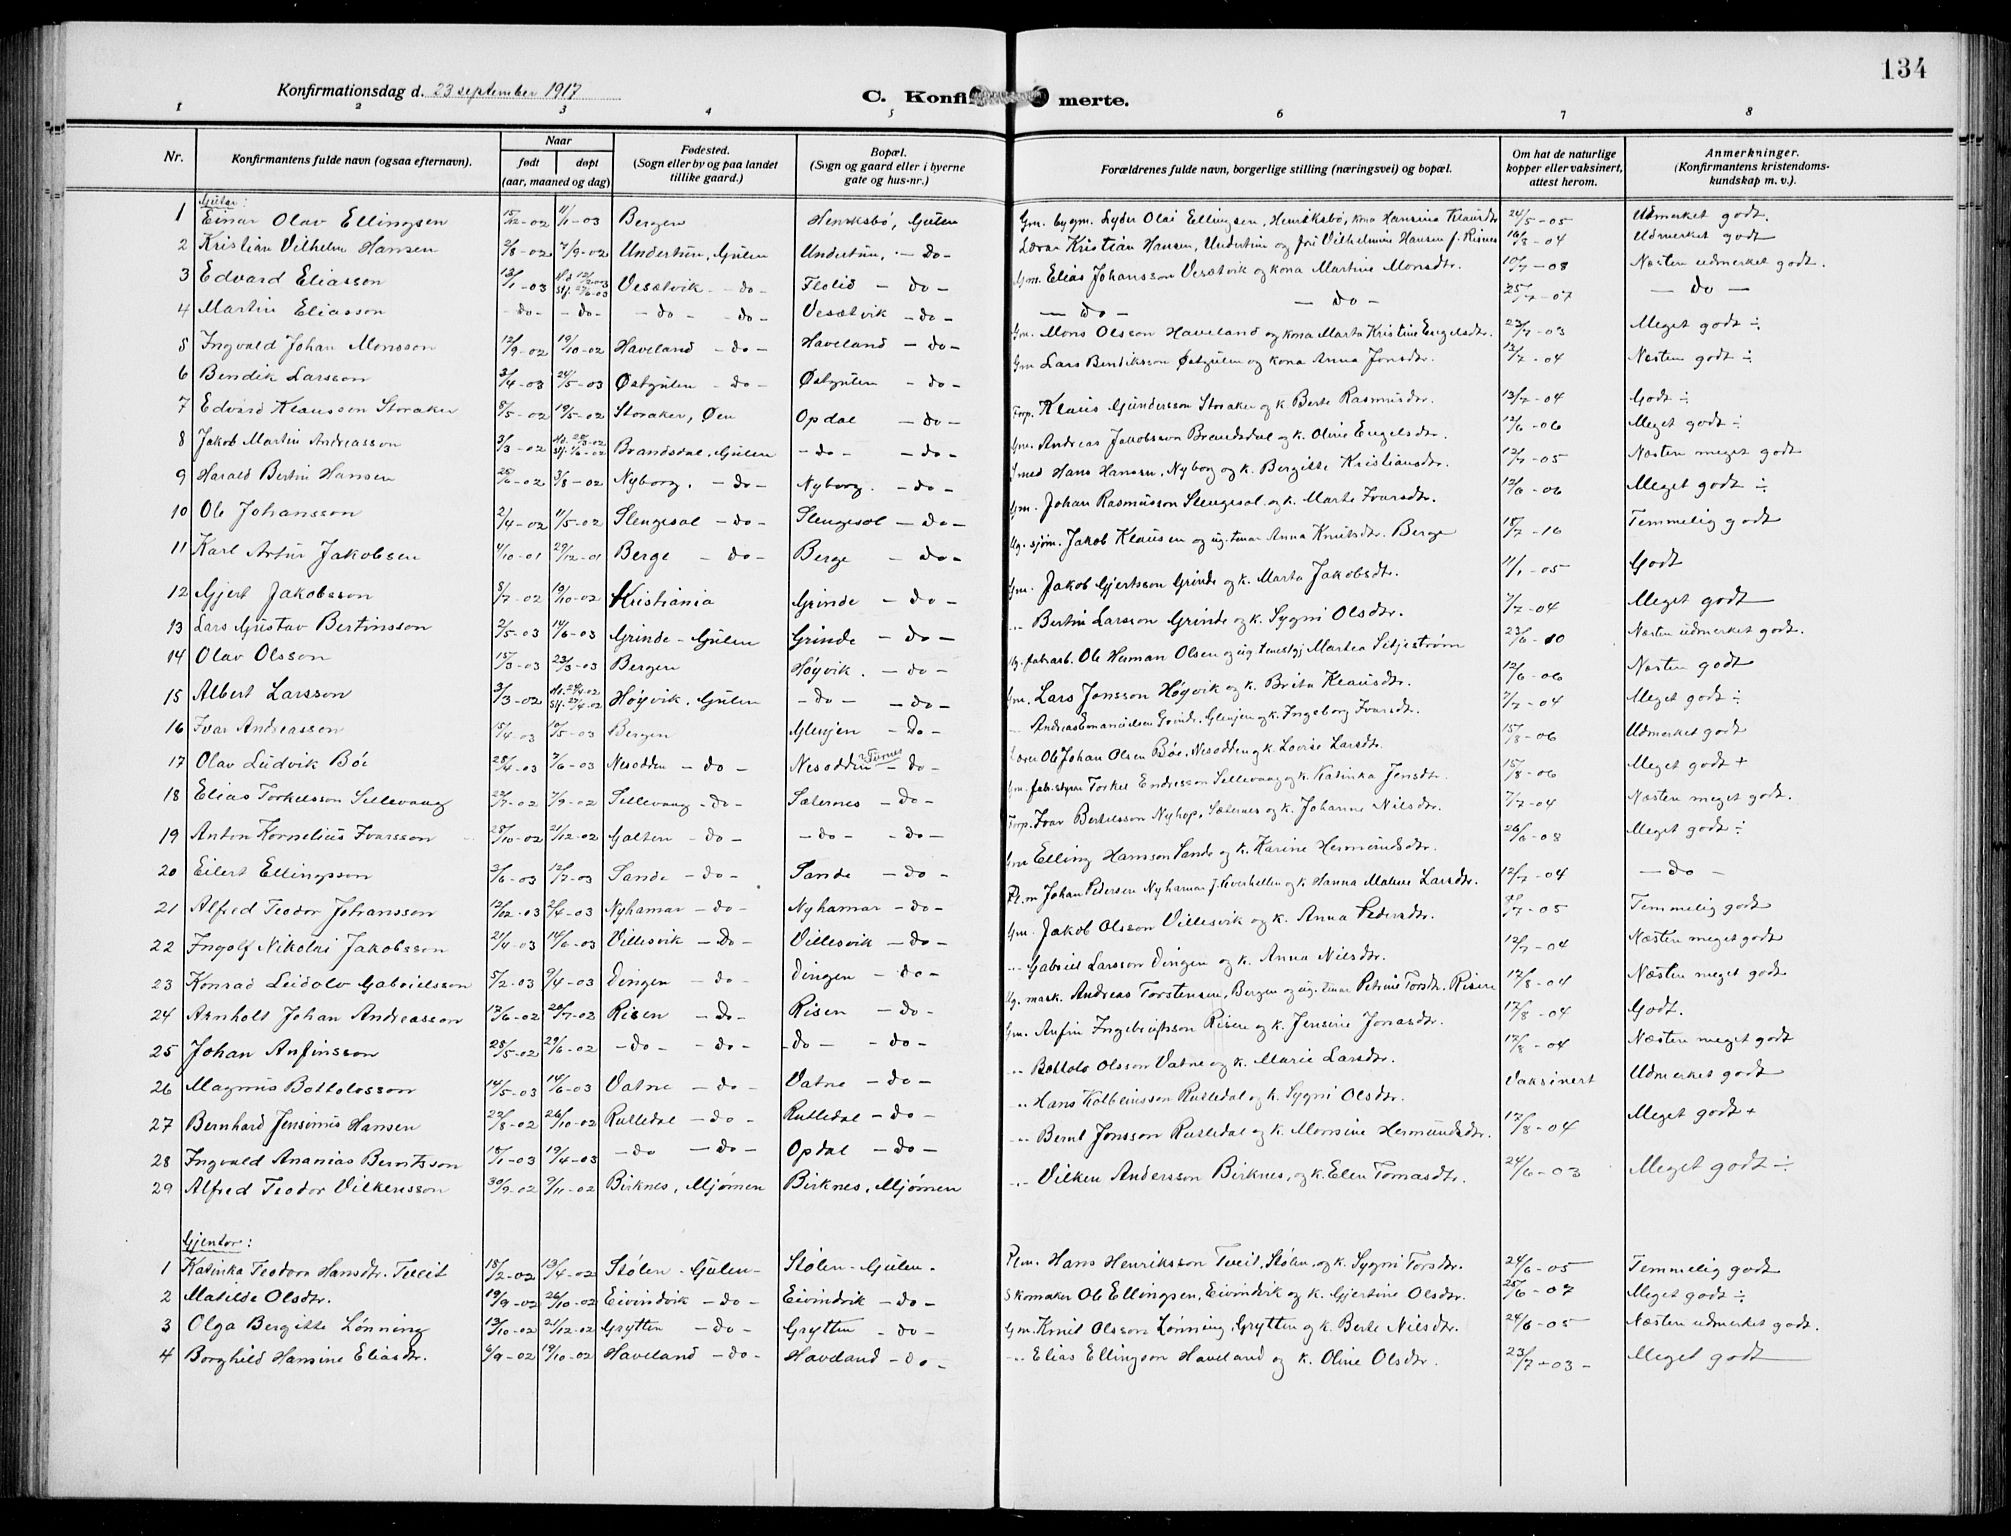 134
Konfirmationsdag d. 23 september 1917
C. Konfirmerte.
1 2 3 4 5 6 7 8
Nr. Konfirmantens fulde navn (ogsaa efternavn). Naar født døpt (aar, maaned og dag) Fødested. (Sogn eller by og paa landet tillike gaard.) Bopæl. (Sogn og gaard eller i byerne gate og hus-nr.) Forældrenes fulde navn, borgerlige stilling (næringsvei) og bopæl. Om hat de naturlige kopper eller vaksinert, attest herom. Anmerkninger. (Konfirmantens kristendoms-kundskap m. v.).
Gutar:
1 Einar Olav Ellingsen 15/12-02 11/1-03 Bergen Henriksbø, Gulen Gm. bygm. Lyder Olai Ellingsen, Henriksbø, kona Hansina Klausdtr 24/5-05 Udmerket godt.
2 Kristian Vilhelm Hansen 2/8-02 7/9-02 Undertun, Gulen Undertun, -do- Lærar Kristian Hansen, Undertun og fru Vilhelmine Hansen f. Risnes 16/8-04 Udmerket godt
3 Edvard Eliasson 13/1-03 Vesætvik -do- Flolid -do- Gm. Elias Johansson Vesætvik og kona Martine Monsdtr. 10/7-08 Næsten udmerket godt.
4 Martin Eliasson -do- -do- -do- -do- Vesætvik -do- -do- -do- 25/7-07 -do-
5 Ingvald Johan Monsson 12/9-02 19/10-02 Haveland -do- Haveland -do- Gm. Mons Olsson Haveland og kona Marta Kristine Engelsdtr. 23/7-03 Meget godt ÷
6 Bendik Larsson 3/4-03 24/5-03 Østgulen -do- Østgulen -do- Gm Lars Bendiksson Østgulen og kona Anna Jonsdtr. 13/7-04 Næsten godt ÷
7 Edvard Klausson Storaker 8/5-02 19/5-02 Storaker, Øen Opdal -do- Forp. Klaus Gundersson Storaker og k. Berte Rasmusdtr. 13/7-04 Godt ÷
8 Jakob Martin Andreasson 3/3-02 Brandsdal, Gulen -do- -do- Gm. Andreas Jakobsson Brandsdal og k. Oline Engelsdtr. 12/6-06 Meget godt ÷
9 Harald Bertin Hansen 25/6-02 3/8-02 Nyborg. -do- Nyborg. -do- Smed Hans Hansen, Nyborg og k. Bergitte Kristiansdtr. 12/7-05 Næsten meget godt
10 Ole Johansson 2/4-02 11/5-02 Slengesol -do- Slengesol -do- Gm. Johan Rasmusson Slengesol og k. Marte Ivarsdtr. 12/6-06 Meget godt ÷
11 Karl Artur Jakobsen 4/10-01 29/12-01 Berge -do- Berge -do- Ug. sjøm. Jakob Klausen og ug. tenar Anna Knutsdtr. Berge 18/7-16 Temmelig godt
12 Gjert Jakobsson 8/7-02 19/10-02 Kristiania Grinde -do- Gm. Jakob Gjertsson Grinde og k. Marta Jakobsdtr. 11/1-05 Godt
13 Lars Gustav Bertinsson 2/5-03 14/6-03 Grinde - Gulen Grinde -do- -"- Bertin Larsson Grinde og k. Sygni Olsdtr. 7/7-04 Meget godt
14 Olav Olsson 15/3-03 23/3-03 Bergen Høyvik. -do- Ug. fabrarb. Ole Herman Olsen og ug. tenestgj Martea Setjestrøm 23/6-10 Næsten udmerket godt.
15 Albert Larsson 3/3-02 Høyvik, Gulen -do- -do- Gm. Lars Jonsson Høyvik og k. Brita Klausdtr. 12/6-06 Næsten godt
16 Ivar Andreasson 15/4-03 10/5-03 Bergen Glenjen -do- Andreas Emanuelsen Grinde, Glenjen og k. Ingeborg Ivarsdtr. 7/7-04 Meget godt ÷
17 Olav Ludvik Bøe 28/4-03 7/6-03 Nesodden -do- Nesodden -do- Lærer Ole Johan Olsen Bøe, Nesodden og k. Lovise Larsdtr. 15/8-06 Udmerket godt
18 Elias Torkelsson Sellevaag 22/7-02 7/9-02 Sellevaag -do- Sæternes -do- Gm. fab. styrar Torkel Endresson Sellevaag og k. Katinka Jensdtr. 15/8-06 Meget godt +
19 Anton Kornelius Ivarsson 28/10-02 21/12-02 Galten -do- -do- -do- Forp. Ivar Bertelsson Nyhop, Sæternes og k. Johanne Nilsdtr. 7/7-04 Næsten meget godt.
20 Eilert Ellingsson 2/6-03 12/7-03 Sande -do- Sande -do- Gm Elling Hansson Sande og k. Karine Hermundsdtr. 26/6-08 Meget godt ÷
21 Alfred Teodor Johansson 12/12-03 2/4-03 Nyhamar -do- Nyhamar -do- Pl.m Johan Pedersen Nyhamar f. Kverhellen og k. Hanna Malene Larsdtr. 12/7-04 -do-
22 Ingolf Nikolai Jakobsson 21/4-03 14/6-03 Villesvik -do- Villesvik -do- Gm. Jakob Olsson Villesvik og k. Anna Pedersdtr. 7-05 Temmelig godt
23 Konrad Leidolv Gabrielsson 5/2-03 9/4-03 Dingen -do- Dingen -do- -"- Gabriel Larsson Dingen og k. Anna Nilsdtr. 12/7-04 Næsten meget godt
24 Arnholt Johan Andreasson 13/6-02 20/7-02 Risen -do- Risen -do- Ug. mask. Andreas Torstensen, Bergen og ug. tenar Petrine Torsdtr. Risen 17/8-04 Næsten meget godt
25 Johan Anfinsson 28/5-02 29/6-02 -do- -do- -do- -do- Gm. Anfin Ingebrigtsson Risen og k. Jensine Jonasdtr. 17/8-04 Godt.
26 Magnus Bottolvsson 14/5-03 14/6-03 Vatne -do- Vatne -do- -"- Bottolv Olsson Vatne og k. Marie Larsdtr. 17/8-04 Næsten meget godt
27 Bernhard Jensenius Hansen 22/8-02 26/10-02 Rutledal -do- Rutledal -do- -"- Hans Kolbeinsson Rutledal og k. Sygni Olsdtr. Vaksinert Udmerket godt
28 Ingvald Ananias Berntsson 18/1-03 19/4-03 -do -do- Opdal -do- -"- Bernt Jonsson Rutledal og k. Monsine Hermundsdtr. 17/8-04 Meget godt +
29 Alfred Teodor Vilkensson 30/9-02 9/11-02 Birknes, Mjømen Birknes, Mjømen -"- Vilken Andersson Birknes, og k. Elen Tomasdtr. 24/6-03 Meget godt ÷
Gjentor:
1 Katinka Teodora Hansdtr. Tveit 18/2-02 13/4-02 Stølen - Gulen- Stølen - Gulen- Plm. Hans Henriksson Tveit, Stølen, og k. Sygni Torsdtr. 24/6-05 Temmelig godt
2 Matilde Olsdtr. 19/9-02 26/10-02 Eivindvik -do- Eivindvik -do- Skomaker Ole Ellingsen, Eivindvik og k. Gjertine Olsdtr. 25/6-07 Meget godt ÷
3 Olga Bergitte Lønning 13/10-02 21/12-02 Grytten -do- Grytten -do- Gm. Knut Olsson Lønning, Grytten og k. Berte Nilsdtr. 24/6-05 Næsten udmerket godt.
4 Borghild Hansine Eliasdtr. 6/9-02 19/10-02 Haveland -do- Haveland -do- -"- Elias Ellingson Haveland og k. Oline Olsdtr. 23/7-03- Meget godt